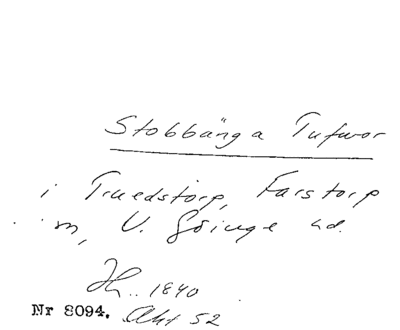 Stobbänga Tufwor
i Truedstorp, Farstorp
sn, V. Göinge hd.
1840.
Nr 8094. Akt 52